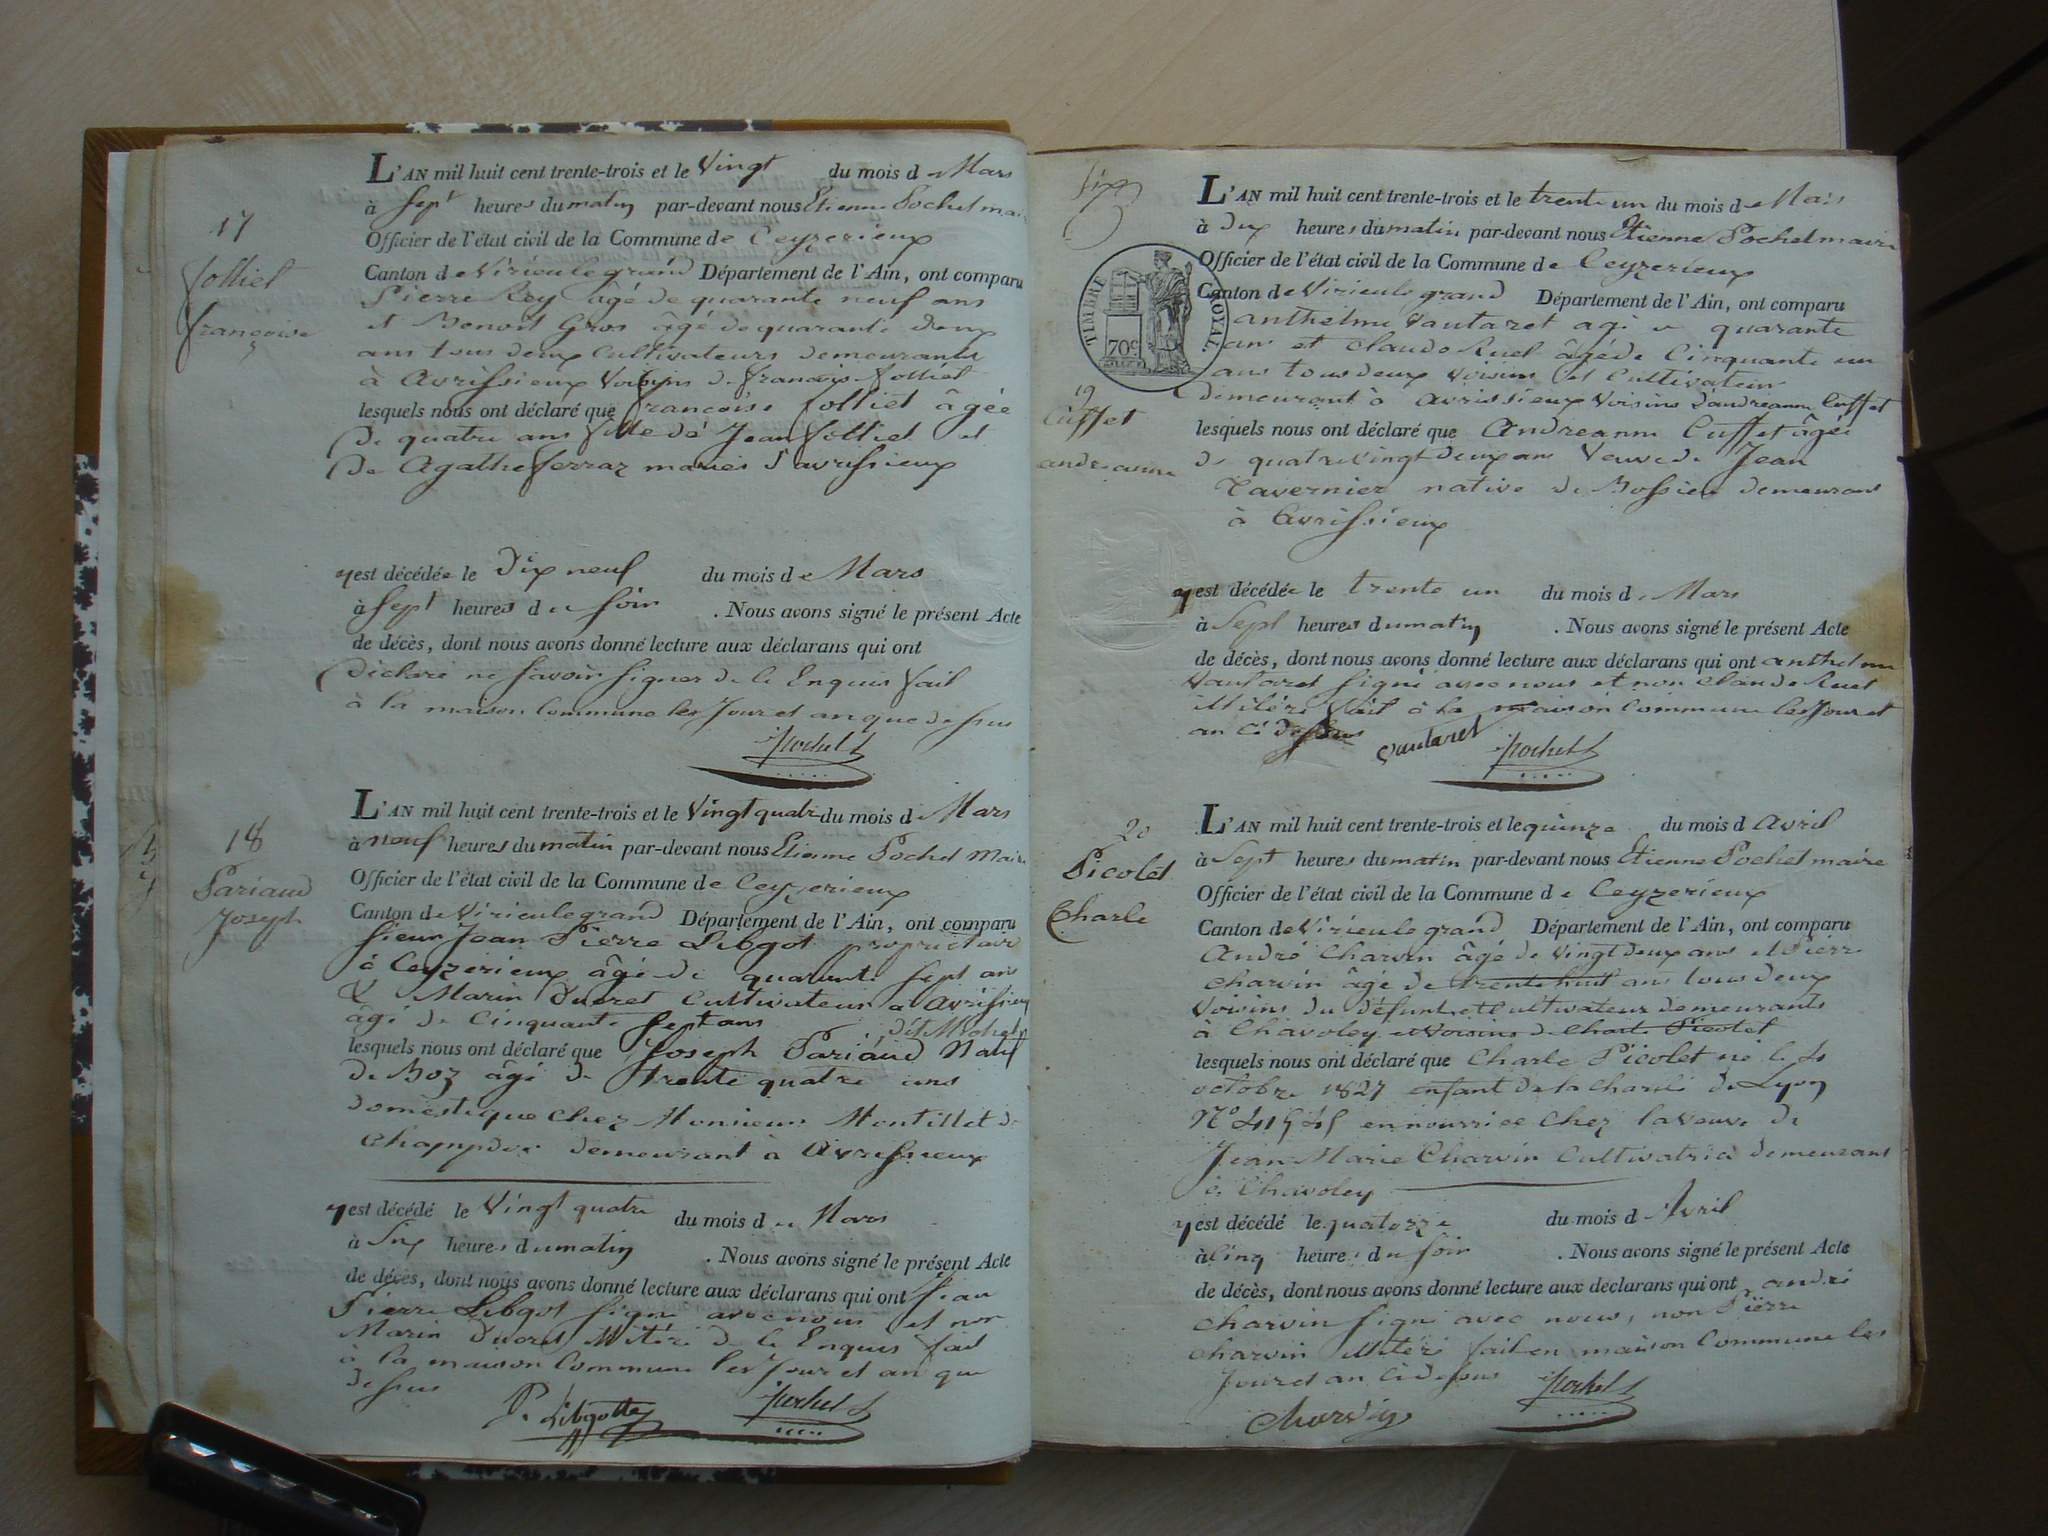 17
Jolliet
françoise
L'AN mil huit cent trente-trois et le Vingt du mois de Mars
à Sept heures du matin par-devant nous Etienne Pochet mai
Officier de l'état civil de la Commune de Ceyzerieux
Canton de Virieulegrand Département de l'Ain, ont comparu
Pierre Rey âgé de quarante neuf ans
et Benoit Gros âgé de quarante deux
ans tous deux Cultivateurs demeurants
à Avrissieux Voisins de francois Jolliet
lesquels nous ont déclaré que francoise Jolliet âgée
de quatre ans fille de Jean Jolliet et
de Agathe ferraz mariés d'avrissieux
y est décédée le Dix neuf du mois de Mars
à Sept heures du soir . Nous avons signé le présent Acte
de décès, dont nous avons donné lecture aux déclarans qui ont
déclaré ne savoir signer de ce Enquis fait
à la maison Commune les Jour et an que dessus
Pochet
18
Pariaud
Joseph
L'AN mil huit cent trente-trois et le Vingt quatre du mois de Mars
à neuf heures du matin par-devant nous Etienne Pochet Maire
Officier de l'état civil de la Commune de Ceyzerieux
Canton de Virieulegrand Département de l'Ain, ont comparu
sieur Jean Pierre Libgot propriétaire
à Ceyzerieux âgé de quarante sept ans
& Marin Ducret Cultivateur à avrissieux
âgé de Cinquante Sept ans
lesquels nous ont déclaré que Joseph Pariaud Natif
de Boz âgé de trente quatre ans
domestique chez Monsieur Montillet de
Champdor demeurant à Avrissieux
y est décédé le Vingt quatre du mois de Mars
à Six heures du matin . Nous avons signé le présent Acte
de décès, dont nous avons donné lecture aux déclarans qui ont Jean
Pierre Libgot signé avec nous et non
Marin Ducret Illitéré de ce Enquis fait
à la maison Commune les Jour et an que
dessus
P. Libgotte Pochet
Six
TIMBRE ROYAL.
70c
19
Cuffet
andreanne
L'AN mil huit cent trente-trois et le trente un du mois de Mars
à Dix heures du matin par-devant nous Etienne Pochet maire
Officier de l'état civil de la Commune de Ceyzerieux
Canton de Virieulegrand Département de l'Ain, ont comparu
anthelme Vautaret agé quarante
ans et Claude Ruet âgé de Cinquante un
ans tous deux voisins et Cultivateur
demeurant à avrissieux Voisins d'andreanne Cuffet
lesquels nous ont déclaré que Andreanne Cuffet âgée
de quatrevingt deux ans Veuve de Jean
Tavernier native de demeurant
à Avrissieux
y est décédée le trente un du mois de Mars
à Sept heures du matin . Nous avons signé le présent Acte
de décès, dont nous avons donné lecture aux déclarans qui ont anthelme
Vautaret signé avec nous et non Claude Ruet
Illitéré fait à la maison Commune les Jour et
an Ci dessus
Vautaret Pochet
20
Picolet
Charle
L'AN mil huit cent trente-trois et le quinze du mois d Avril
à Sept heures du matin par-devant nous Etienne Pochet maire
Officier de l'état civil de la Commune de Ceyzerieux
Canton de Virieulegrand Département de l'Ain, ont comparu
André Charvin âgé de Vingt deux ans et Pierre
charvin âgé de trente huit ans tous deux
voisins du défunt et Cultivateur demeurants
à Chavoley et voisins de Charle Picolet
lesquels nous ont déclaré que Charle Picolet né le
octobre 1827 enfant de la charité de Lyon
en nourrice chez la veuve de
Jean Marie Charvin Cultivatrice demeurant
à Chavoley
y est décédé le quatorze du mois d Avril
à Cinq heures du soir . Nous avons signé le présent Acte
de décès, dont nous avons donné lecture aux déclarans qui ont andré
charvin signé avec nous, non Pierre
charvin Illitéré fait en maison Commune les
Jour et an Ci dessus Pochet
Charvin